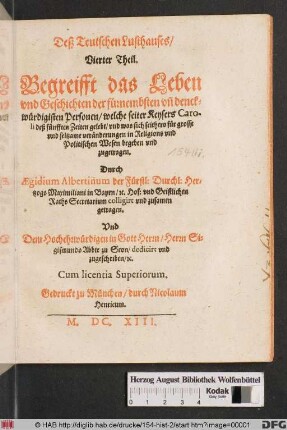 Deß Teutschen Lusthauses/
Vierter Theil.
Begreifft das Leben
vnd Geschichten der fürnembsten vñ denck-
würdigisten Personen/ welche seiter Keysers Caro-
li deß fünfften Zeiten gelebt/ vnd was sich seithero für grosse
vnd seltzame veränderungen in Religions vnd
Politischen Wesen begeben vnd
zugetragen.
Durch
Ægidium Albertinum der Fürstl: Durchl: Her-
zogs Maximiliani in Bayrn/ ꝛc. Hof: vnd Geistlichen
Raths Secretarium colligirt vnd zusamen
getragen.
Vnd
Dem Hochehrwürdigen in Gott Herrn/ Herrn Si-
gismundo Abbte zu Seon/ dedicirt vnd
zugeschriben/ ꝛc.
Cum licentia Superiorum.
Gedruckt zu München/ durch Nicolaum
Henricum.
M. DC. XIII.
Herzog August Bibliothek Wolfenbüttel
Kodak
© HAB http://diglib.hab.de/drucke/154-hist-2/start.htm?image=00001
DFG